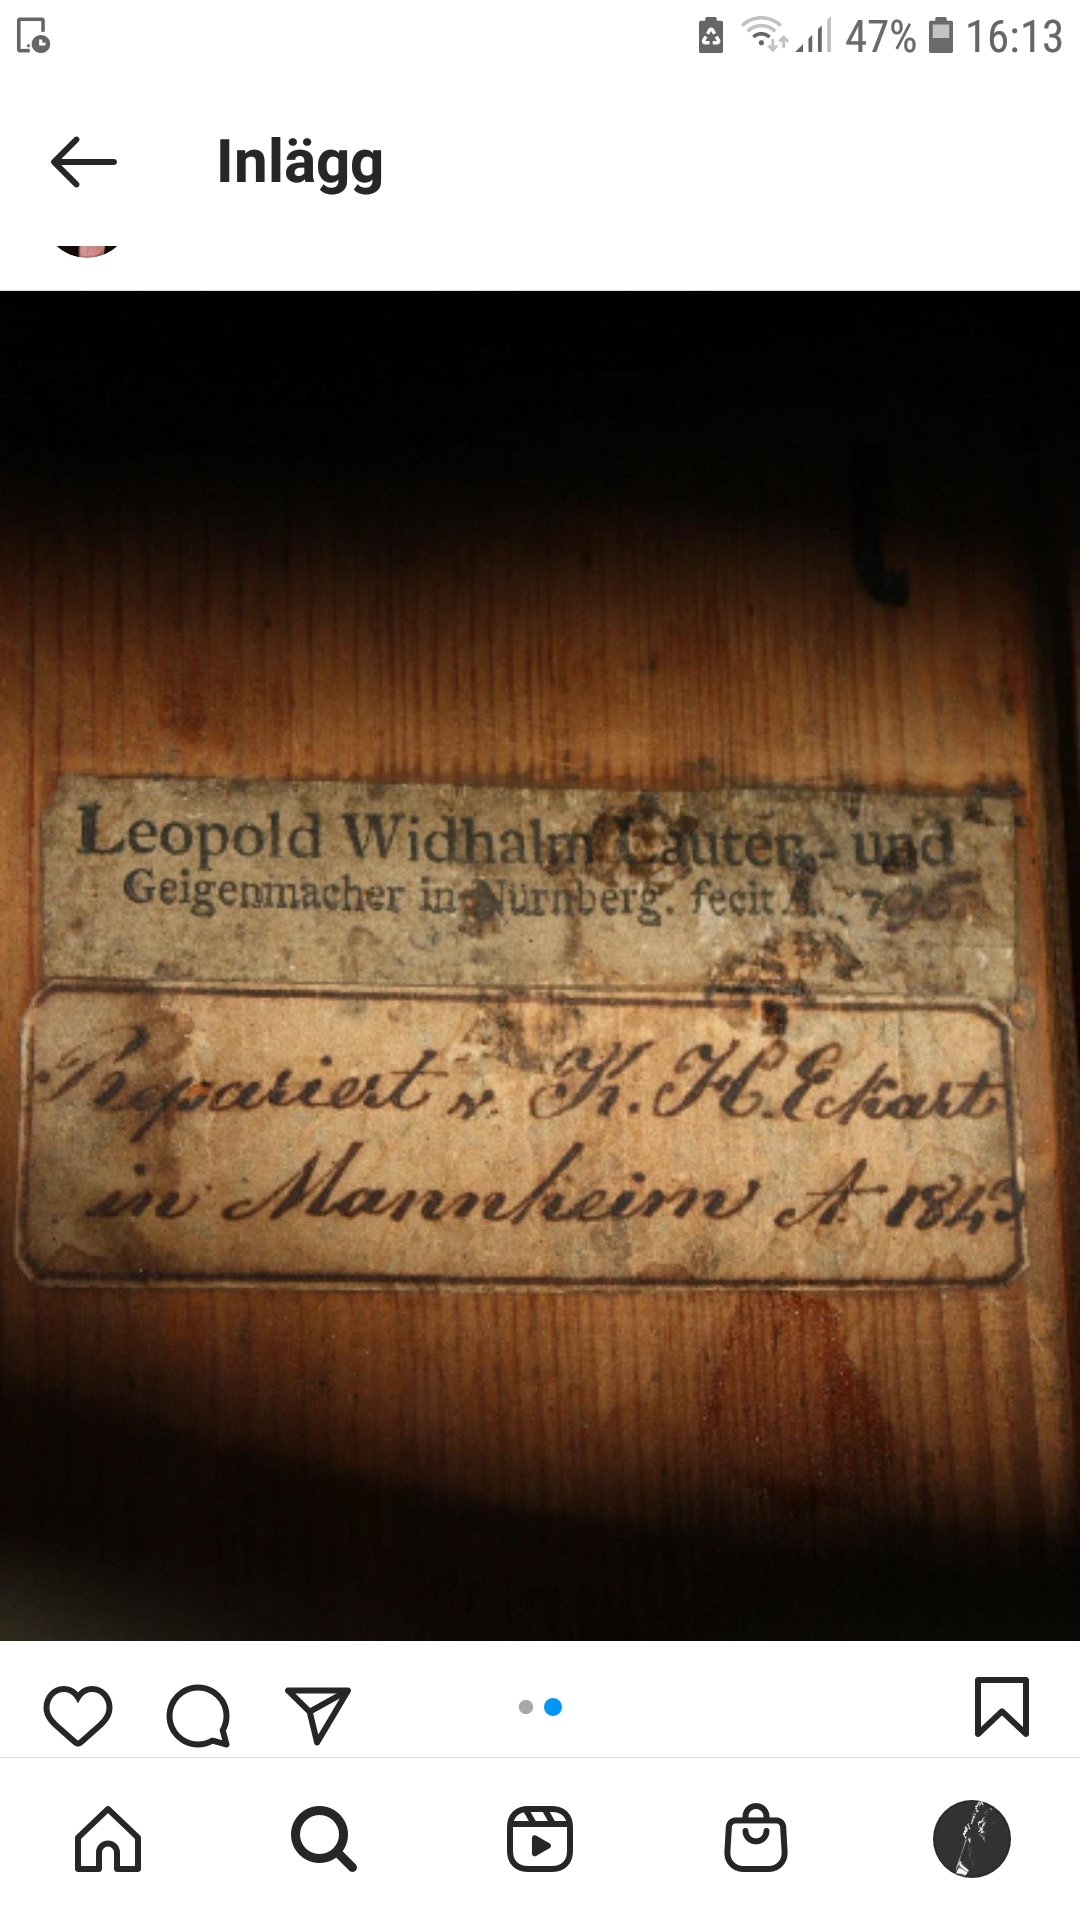 47% 16:13
Inlägg
Leopold Widhalm Lauten- und
Geigenmacher in Nürnberg. fecit A.
Repariert v. K. H. Eckart
in Mannheim A. 1843